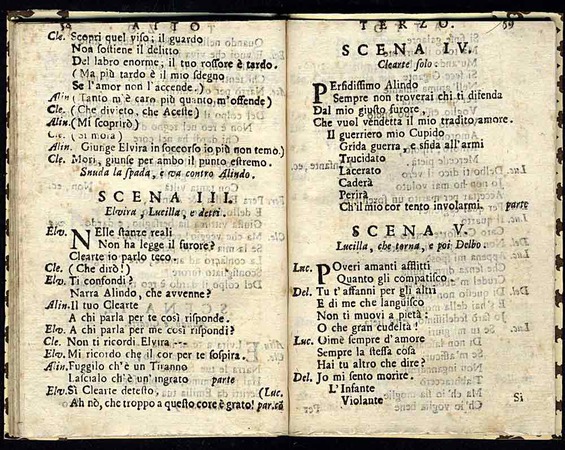 58 ATTO
Cle. Scopri quel viso; il guardo
Non sostiene il delitto
Del labro enorme; il tuo rossore è tardo.
( Ma più tardo è il mio sdegno
Se l'amor non l'accende. )
Alin. ( Tanto m'è caro più quanto m'offende )
Cle. ( Che divieto, che Aceste )
Alin. ( Mi scoprirò )
Cle. ( Si mora )
Alin. Giunge Elvira in soccorso io più non temo. )
Cle. Mori, giunse per ambo il punto estremo.
Snuda la spada, e va contro Alindo.
SCENA III.
Elvira, Lucilla, e detti.
Elv. NElle stanze reali
Non ha legge il furore?
Clearte io parlo teco.
Cle. ( Che dirò! )
Elv. Ti confondi?
Narra Alindo, che avvenne?
Alin. Il tuo Clearte
A chi parla per te così risponde.
Elv. A chi parla per me così rispondi?
Cle. Non ti ricordi Elvira ---
Elv. Mi ricordo che il cor per te sospira.
Alin. Fuggilo ch'è un Tiranno
Lascialo ch'è un'ingrato parte
Elv. Sì Clearte detesto, (Luc.
Ah nò, che troppo a questo core è grato! par.cō
TERZO. 59
SCENA IV.
Clearte solo.
PErfidissimo Alindo
Sempre non troverai chi ti difenda
Dal mio giusto furore
Che vuol vendetta il mio tradito amore.
Il guerriero mio Cupido
Grida guerra, e sfida all'armi
Trucidato
Lacerato
Caderà
Perirà
Ch'il mio cor tento involarmi. parte
SCENA V.
Lucilla, che torna, e poi Delbo.
Luc. POveri amanti afflitti
Quanto gli compatisco
Del. Tu t'affanni per gli altri
E di me che languisco
Non ti muovi a pietà:
O che gran cudeltà!
Luc. Oimè sempre d'amore
Sempre la stessa cosa
Hai tu altro che dire?
Del. Jo mi sento morire.
L'Infante
Violante
Si